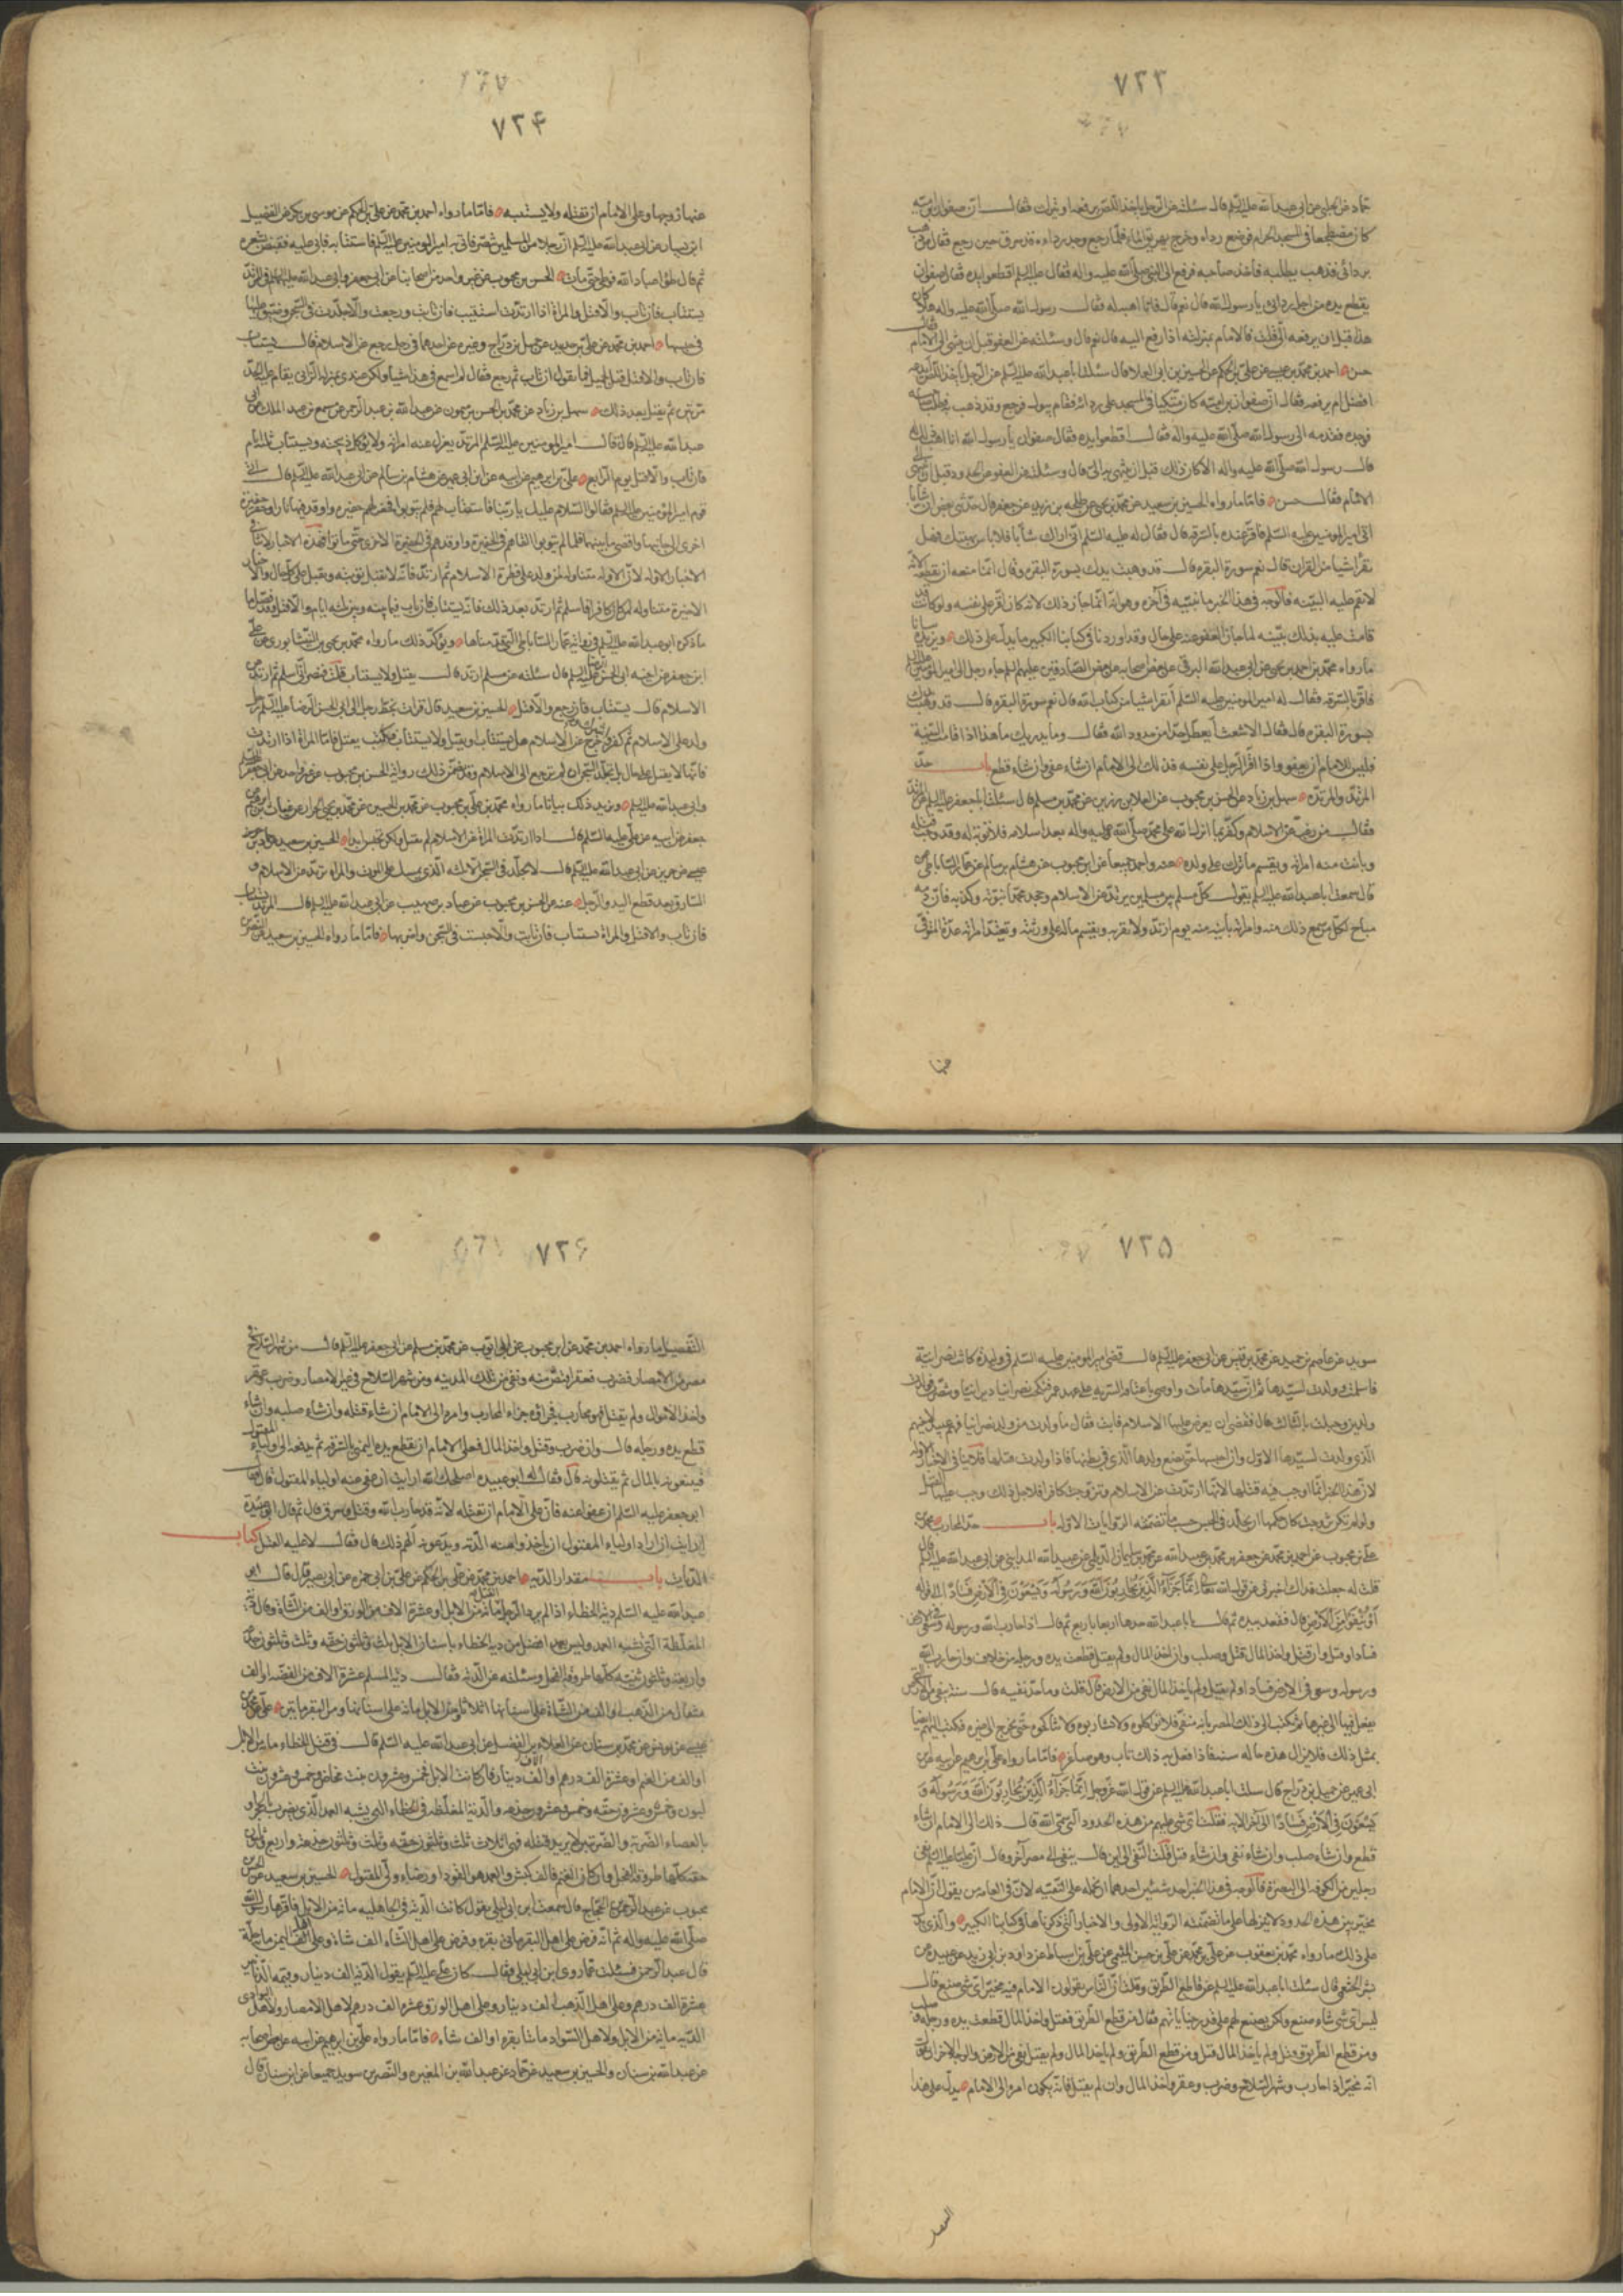 ٧٢٣
حماد عن الحلبي عن ابي عبد الله عليه السلم قال سئلته عن الرجل ياخذ اللص يرفعه او يتركه فقال ان صفوان بن امية
كان مضطجعا في المسجد الحرام فوضع رداءه وخرج يهريق الماء فلما رجع وجد رداءه قد سرق حين رجع فقال من ذهب
بردائي فذهب يطلبه فاخذ صاحبه فرفع الى النبي صلى الله عليه واله فقال عليه السلم اقطعوا يده فقال صفوان
يقطع يده من اجل ردائي يا رسول الله قال نعم قال فانا اهبه له فقال رسول الله صلى الله عليه واله فهلا كان
هذا قبل ان ترفعه الي قلت فالامام بمنزلته اذا رفع اليه قال نعم قال وسئلته عن العفو قبل ان ينتهي الى الامام فقال
حسن احمد بن محمد بن عيسى عن علي بن الحكم عن الحسين بن ابي العلا قال سئلت ابا عبد الله عليه السلم عن الرجل ياخذ اللص يدعه
افضل ام يرفعه فقال ان صفوان بن امية كان متكيا في المسجد على ردائه فقام يبول فرجع وقد ذهب به فطلب صاحبه
فوجده فقدمه الى رسول الله صلى الله عليه واله فقال اقطعوا يده فقال صفوان يا رسول الله انا اهب ذلك له
قال رسول الله صلى الله عليه واله الا كان ذلك قبل ان ينتهي به الي قال وسئلته عن العفو عن الحدود قبل ان ينتهي الى
الامام فقال حسن فاما ما رواه الحسين بن سعيد عن محمد بن يحيى عن طلحة بن زيد عن جعفر قال حدثني بعض اهلي ان شابا
اتى امير المومنين عليه السلم فاقر عنده بالسرقة قال فقال له عليه السلم اني اراك شابا لا باس بهبتك فهل
تقرا شيا من القران قال نعم سورة البقرة قال قد وهبت يدك بسورة البقرة وقال انما منعه ان يقطعه لانه
لم تقم عليه البينة فالوجه في هذا الخبر ما نبينه في اخره وهو انه انما جاز ذلك لانه كان اقر على نفسه ولو كان قد
قامت عليه بذلك بينة لما جاز العفو عنه على حال وقد اوردنا في كتابنا الكبير ما يدل على ذلك ويزيده بيانا
ما رواه محمد بن احمد بن يحيى عن ابي عبد الله البرقي عن بعض اصحابه عن بعض الصادقين عليهم السلم قال جاء رجل الى امير المومنين عليه السلم
فاقر بالسرقة فقال له امير المومنين عليه السلم اتقرا شيا من كتاب الله قال نعم سورة البقرة قال قد وهبت يدك
بسورة البقرة قال فقال الاشعث اتعطل حدا من حدود الله فقال وما يدريك ما هذا اذا قامت البينة
فليس للامام ان يعفو واذا اقر الرجل على نفسه فذلك الى الامام ان شاء عفى وان شاء قطع باب حد
المرتد والمرتدة سهل بن زياد عن الحسن بن محبوب عن العلا بن رزين عن محمد بن مسلم قال سئلت ابا جعفر عليه السلم عن المرتد
فقال من رغب عن الاسلام وكفر بما انزل الله على محمد صلى الله عليه واله بعد اسلامه فلا توبة له وقد وجب قتله
وبانت منه امراته ويقسم ما ترك على ولده عنه واحمد جميعا عن ابن محبوب عن هشام بن سالم عن عمار الساباطي
قال سمعت ابا عبد الله عليه السلم يقول كل مسلم بين مسلمين يرتد عن الاسلام وجحد محمدا نبوته وكذبه فان دمه
مباح لكل من سمع ذلك منه وامراته بائنة منه يوم ارتد ولا تقربه ويقسم ماله على ورثته وتعتد امراته عدة المتوفى
عنها
٧٢٤
عنها زوجها وعلى الامام ان يقتله ولا يستتيبه فاما ما رواه احمد بن محمد عن علي بن الحكم عن موسى بن بكر عن الفضيل
ابن يسار عن ابي عبد الله عليه السلم ان رجلا من المسلمين تنصر فاتي به امير المومنين عليه السلم فاستتابه فابى عليه فقبض على شعره
ثم قال طؤا عباد الله فوطئ حتى مات الحسن بن محبوب عن غير واحد من اصحابنا عن ابي جعفر وابي عبد الله عليهما السلم في المرتد
يستتاب فان تاب والا قتل والمراة اذا ارتدت استتيبت فان تابت ورجعت والا خلدت في السجن وضيق عليها
في حبسها احمد بن محمد عن علي بن حديد عن جميل بن دراج وغيره عن احدهما في رجل رجع عن الاسلام قال يستتاب
فان تاب والا قتل قيل لجميل فما تقول ان تاب ثم رجع فقال لم اسمع في هذا شيا ولكن عندي بمنزلة الزاني يقام عليه الحد
مرتين ثم يقتل بعد ذلك سهل بن زياد عن محمد بن الحسن بن شمون عن عبد الله بن عبد الرحمن عن مسمع بن عبد الملك عن ابي
عبد الله عليه السلم قال قال امير المومنين عليه السلم المرتد يعزل عنه امراته ولا توكل ذبيحته ويستتاب ثلثة ايام
فان تاب والا قتل يوم الرابع علي بن ابرهيم عن ابيه عن ابن ابي عمير عن هشام بن سالم عن ابي عبد الله عليه السلم قال اتى
قوم امير المومنين عليه السلم فقالوا السلام عليك يا ربنا فاستتابهم فلم يتوبوا فحفر لهم حفيرة واوقد فيها نارا وحفر حفيرة
اخرى الى جانبها وافضى ما بينهما فلما لم يتوبوا القاهم في الحفيرة واوقد في الحفيرة الاخرى حتى ماتوا فهذه الاخبار لا تنافي
الاخبار الاولة لان الاولة متناولة لمن ولد على فطرة الاسلام ثم ارتد فانه لا تقبل توبته ويقتل على كل حال والاخبار
الاخيرة متناولة لمن كان كافرا فاسلم ثم ارتد بعد ذلك فانه يستتاب فان تاب فيما بينه وبين ثلثة ايام والا قتل وقد فصل
ما ذكره ابو عبد الله عليه السلم في رواية عمار الساباطي التي قدمناها ويؤكد ذلك ما رواه محمد بن يحيى عن العمركي بن علي النيشابوري عن علي
ابن جعفر عن اخيه ابي الحسن عليه السلم قال سئلته عن مسلم ارتد قال يقتل ولا يستتاب قلت فنصراني اسلم ثم ارتد عن
الاسلام قال يستتاب فان رجع والا قتل الحسين بن سعيد قال قرات بخط رجل الى ابي الحسن الرضا عليه السلم رجل
ولد على الاسلام ثم كفر واشرك وخرج عن الاسلام هل يستتاب او يقتل ولا يستتاب فكتب يقتل فاما المراة اذا ارتدت
فانها لا تقتل على حال بل تخلد السجن ان لم ترجع الى الاسلام وقد تضمن ذلك رواية الحسن بن محبوب عن غير واحد عن ابي جعفر
وابي عبد الله عليه السلم ويزيد ذلك بيانا ما رواه محمد بن علي بن محبوب عن محمد بن الحسين عن محمد بن يحيى الخزاز عن غياث بن ابرهيم عن
جعفر عن ابيه عن علي عليه السلم قال اذا ارتدت المراة عن الاسلام لم تقتل ولكن تحبس ابدا الحسين بن سعيد عن حماد بن
عيسى عن حريز عن ابي عبد الله عليه السلم قال لا يخلد في السجن الا ثلثة الذي يمسك على الموت والمراة ترتد عن الاسلام و
السارق بعد قطع اليد والرجل عنه عن الحسن بن محبوب عن عباد بن صهيب عن ابي عبد الله عليه السلم قال المرتد يستتاب
فان تاب والا قتل والمراة تستتاب فان تابت والا حبست في السجن واضر بها فاما ما رواه الحسين بن سعيد عن النضر بن
٧٢٥
سويد عن عاصم بن حميد عن محمد بن قيس عن ابي جعفر عليه السلم قال قضى امير المومنين عليه السلم في وليدة كانت نصرانية
فاسلمت وولدت لسيدها ثم ان سيدها مات واوصى بها عتاقة السرية على عهد عمر فنكحت نصرانيا ديرانيا وتنصرت فولدت
ولدين وحبلت بالثالث قال فقضى ان يعرض عليها الاسلام فابت فقال ما ولدت من ولد نصرانيا فهم عبيد لاخيهم
الذي ولدت لسيدها الاول وانا احبسها حتى تضع ولدها الذي في بطنها فاذا ولدت قتلتها فلا ينافي الاخبار الاولة
لان هذا الخبر انما اوجب فيه قتلها لانها ارتدت عن الاسلام وتزوجت كافرا فلاجل ذلك وجب عليها القتل
ولو لم تكن تزوجت كان حكمها ان تخلد في الحبس حسب ما تضمنته الروايات الاولة باب حد المحارب محمد بن
علي بن محبوب عن احمد بن محمد عن جعفر بن محمد بن عبيد الله عن محمد بن سليمان الديلمي عن عبيد الله المدايني عن ابي عبد الله عليه السلم قال
قلت له جعلت فداك اخبرني عن قول الله تعالى انما جزاء الذين يحاربون الله ورسوله ويسعون في الارض فسادا الى قوله
او ينفوا من الارض قال فعقد بيده ثم قال يا با عبد الله خذها اربعا باربع ثم قال اذا حارب الله ورسوله وسعى في الارض
فسادا وقتل قتل وان قتل واخذ المال قتل وصلب وان اخذ المال ولم يقتل قطعت يده ورجله من خلاف وان حارب الله
ورسوله وسعى في الارض فسادا ولم يقتل ولم ياخذ المال نفي من الارض قال قلت وما حد نفيه قال سنة ينفى من الارض
يفعل فيها الى غيرها ثم يكتب الى ذلك المصر بانه منفي فلا تواكلوه ولا تشاربوه ولا تناكحوه حتى يخرج الى غيره فيكتب اليهم ايضا
بمثل ذلك فلا يزال هذه حاله سنة فاذا فعل به ذلك تاب وهو صاغر فاما ما رواه علي بن ابرهيم عن ابيه عن ابن
ابي عمير عن جميل بن دراج قال سئلت ابا عبد الله عليه السلم عن قول الله عز وجل انما جزاء الذين يحاربون الله ورسوله و
يسعون في الارض فسادا الى اخر الاية فقلت اي شي عليهم من هذه الحدود التي سمى الله قال ذلك الى الامام ان شاء
قطع وان شاء صلب وان شاء نفى وان شاء قتل قلت النفي الى اين قال ينفى الى مصر اخر وقال ان عليا عليه السلم نفى
رجلين من الكوفة الى البصرة فالوجه في هذا الخبر احد شيئين احدهما ان نحمله على التقية لان في العامة من يقول ان الامام
مخير بين هذه الحدود لا ينزلها على ما تضمنته الرواية الاولى والاخبار التي ذكرناها في كتابنا الكبير والذي يدل
على ذلك ما رواه محمد بن يعقوب عن علي بن محمد عن علي بن حسن الميثمي عن علي بن اسباط عن داود بن ابي زيد عن عبيدة بن
بشر الخثعمي قال سئلت ابا عبد الله عليه السلم عن قاطع الطريق وقلت ان الناس يقولون الامام فيه مخير اي شي صنع قال
ليس اي شي شاء صنع ولكن يصنع بهم على قدر جناياتهم فقال من قطع الطريق فقتل واخذ المال قطعت يده ورجله وصلب
ومن قطع الطريق وقتل ولم ياخذ المال قتل ومن قطع الطريق ولم ياخذ المال ولم يقتل نفي من الارض والوجه الاخر ان يقال
انه مخير اذا حارب وشهر السلاح وضرب وعقر واخذ المال وان لم يقتل فانه يكون امره الى الامام يدل على هذا
التفصيل
٧٢٦
التفصيل ما رواه احمد بن محمد عن ابن محبوب عن ابي ايوب عن محمد بن مسلم عن ابي جعفر عليه السلم قال من شهر السلاح في
مصر من الامصار فضرب فعقر اقتص منه ونفي من تلك المدينة ومن شهر السلاح في غير الامصار وضرب وعقر
واخذ الاموال ولم يقتل فهو محارب فجزاؤه جزاء المحارب وامره الى الامام ان شاء قتله وان شاء صلبه وان شاء
قطع يده ورجله قال وان ضرب وقتل واخذ المال فعلى الامام ان يقطع يده اليمنى بالسرقة ثم يدفعه الى اولياء المقتول
فيتبعونه بالمال ثم يقتلونه قال فقال له ابو عبيدة اصلحك الله ارايت ان عفى عنه اولياء المقتول قال فقال
ابو جعفر عليه السلم ان عفوا عنه فان على الامام ان يقتله لانه قد حارب الله وقتل وسرق قال ثم قال ابو عبيدة
ارايت ان اراد اولياء المقتول ان ياخذوا منه الدية ويدعونه الهم ذلك قال فقال لا عليه القتل كتاب
الديات باب مقدار الدية احمد بن محمد عن علي بن الحكم عن علي بن ابي حمزة عن ابي بصير قال قال ابو
عبد الله عليه السلم دية الخطاء اذا لم يرد الرجل القتل مائة من الابل او عشرة الاف من الورق او الف من الشاة وقال دية
المغلظة التي تشبه العمد وليس بعمد افضل من دية الخطاء باسنان الابل ثلث وثلثون حقة وثلث وثلثون جذعة
واربعة وثلثون ثنية كلها طروقة الفحل وسئلته عن الدية فقال دية المسلم عشرة الاف من الفضة او الف
مثقال من الذهب او الف من الشاة على اسنانها اثلاثا ومن الابل مائة على اسنانها ومن البقر مائتين علي عن محمد بن
عيسى عن يونس عن محمد بن سنان عن العلاء بن الفضيل عن ابي عبد الله عليه السلم قال في قتل الخطاء مائة من الابل
او الف من الغنم او عشرة الف درهم او الف دينار فان كانت الابل فخمس وعشرون بنت مخاض وخمس وعشرون بنت
لبون وخمس وعشرون حقة وخمس وعشرون جذعة والدية المغلظة في الخطاء الذي يشبه العمد الذي يضرب بالحجر او
بالعصاء الضربة والضربتين لا يريد قتله فهي اثلاث ثلث وثلثون حقة وثلث وثلثون جذعة واربع وثلثون
خلفة كلها طروقة الفحل وان كان من الغنم فالف كبش والعمد هو القود او رضاء ولي المقتول الحسين بن سعيد عن الحسن بن
محبوب عن عبد الرحمن بن الحجاج قال سمعت ابن ابي ليلى يقول كانت الدية في الجاهلية مائة من الابل فاقرها رسول الله
صلى الله عليه واله ثم انه فرض على اهل البقر مائتي بقرة وفرض على اهل الشاء الف شاة وعلى اهل اليمن مائة حلة
قال عبد الرحمن فسئلت عما روى ابن ابي ليلى فقال كان علي عليه السلم يقول الدية الف دينار وقيمة الدنانير
عشرة الف درهم وعلى اهل الذهب الف دينار وعلى اهل الورق عشرة الف درهم لاهل الامصار ولاهل البوادي
الدية مائة من الابل ولاهل السواد مائتا بقرة او الف شاة فاما ما رواه علي بن ابرهيم عن ابيه عن بعض اصحابه
عن عبد الله بن سنان والحسين بن سعيد عن حماد عن عبد الله بن المغيرة والنضر بن سويد جميعا عن ابن سنان قال